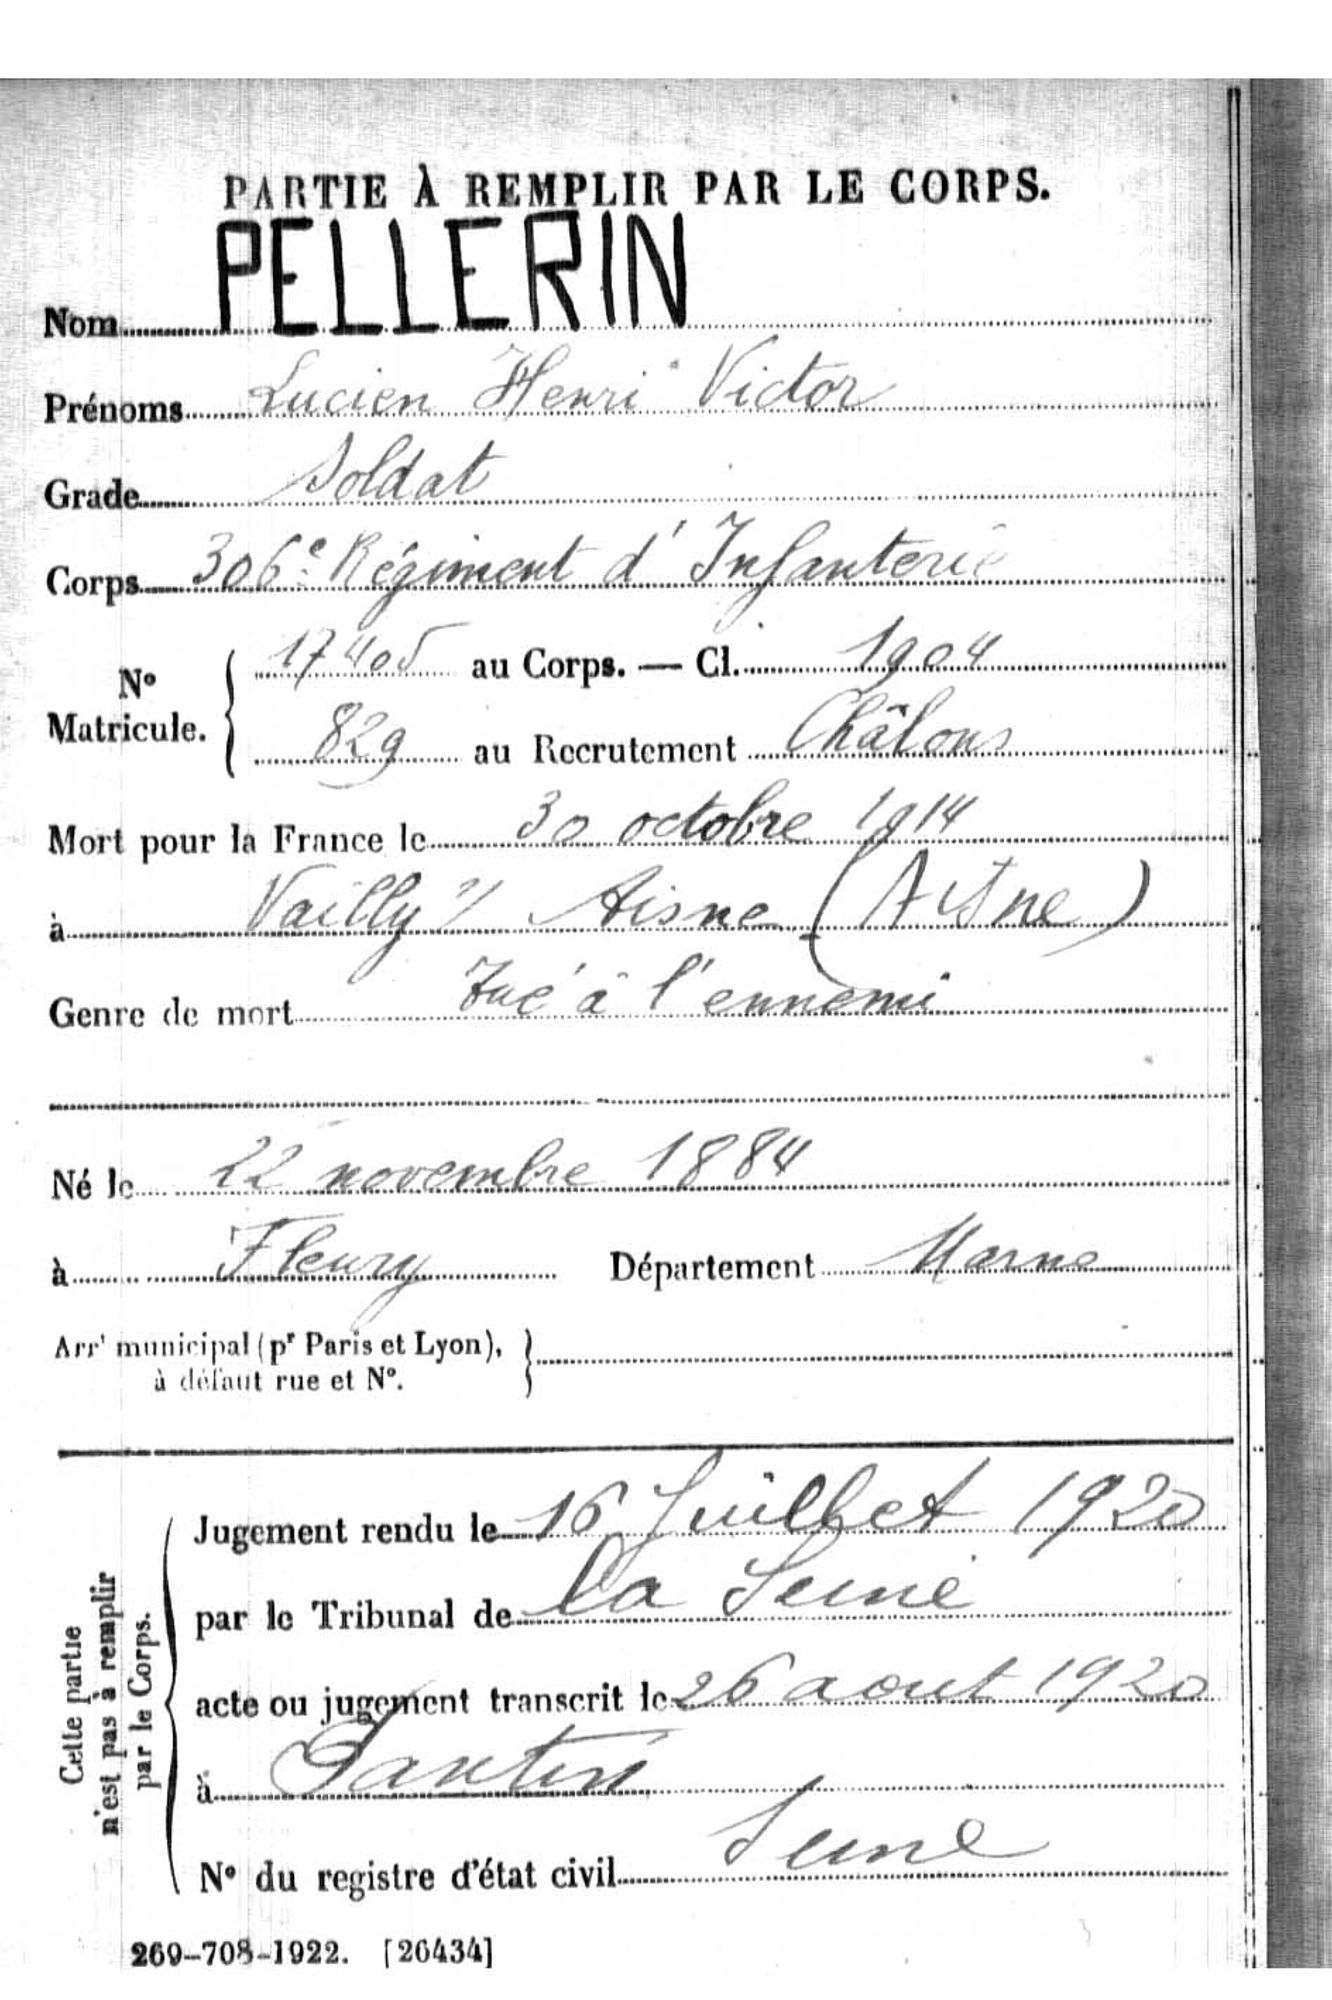 PARTIE À REMPLIR PAR LE CORPS.
Nom PELLERIN
Prénoms Lucien Henri Victor
Grade Soldat
Corps 306e Régiment d'Infanterie
No Matricule. { 17405 au Corps. — Cl. 1904
829 au Recrutement Châlons
Mort pour la France le 30 octobre 1914
à Vailly s/ Aisne (Aisne)
Genre de mort Tué à l'ennemi
Né le 22 novembre 1884
à Fleury Département Marne
Arrt municipal (pr Paris et Lyon),
à défaut rue et No.
Cette partie n'est pas à remplir par le Corps.
Jugement rendu le 16 Juillet 1920
par le Tribunal de la Seine
acte ou jugement transcrit le 26 aout 1920
à Pantin
Seine
No du registre d'état civil
269-708-1922. [26434]